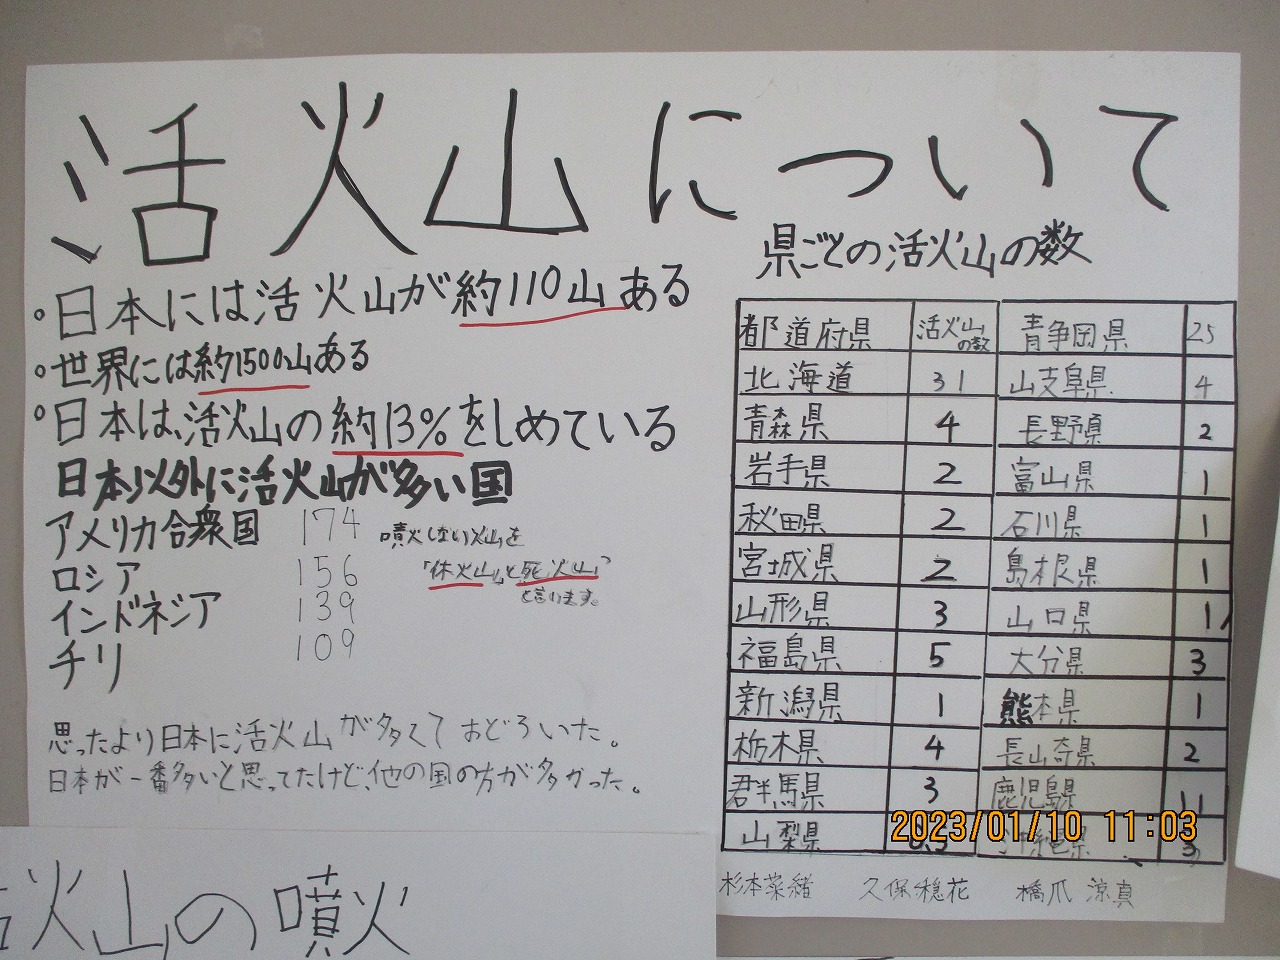 活火山について
・日本には活火山が約110山ある
・世界には約1500山ある
・日本は、活火山の約13%をしめている
日本以外に活火山が多い国
アメリカ合衆国 174
ロシア 156
インドネジア 139
チリ 109
噴火しない火山を
「休火山」と死火山」
と言います。
思ったより日本に活火山が多くておどろいた。
日本が一番多いと思ってたけど、他の国の方が多かった。
県ごとの活火山の数
都道府県 活火山の数 青争岡県 25
北海道 31 山支阜県 4
青森県 4 長野県 2
岩手県 2 富山県 1
秋田県 2 石川県 1
宮城県 2 島根県 1
山形県 3 山口県 1
福島県 5 大分県 3
新潟県 1 熊本県 1
栃木県 4 長山奇県 2
群馬県 3 鹿児島県 11
山梨県 沖縄県 3
2023/01/10 11:03
杉本菜緒 久保穏花 橋爪 涼真
活火山の噴火